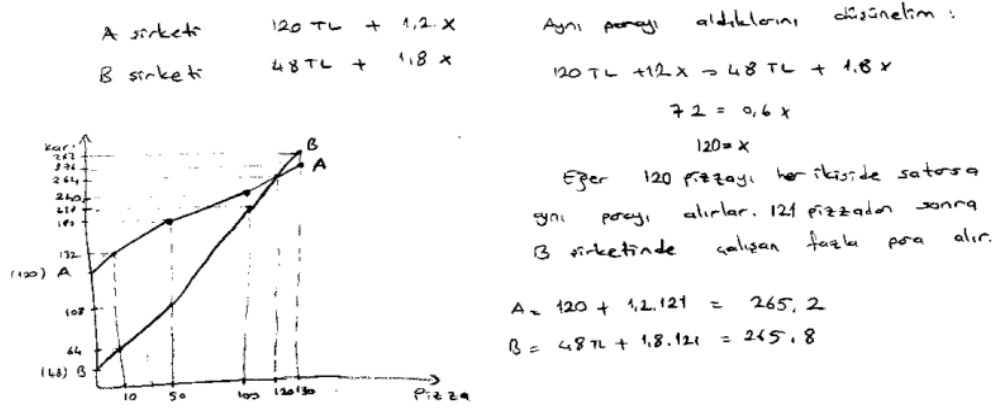 A şirketi 120 TL + 1,2.x
B şirketi 48 TL + 1,8 x
Karı
282
276
264
240
218
180
132
(120) A
108
64
(48) B
B
A
10 50 100 120 130 Pizza
Aynı parayı aldıklarını düşünelim :
120 TL +12 x = 48 TL + 1.8 x
72 = 0,6 x
120 = x
Eğer 120 pizzayı her ikiside satarsa
aynı parayı alırlar. 121 pizzadan sonra
B şirketinde çalışan fazla para alır.
A = 120 + 1,2.121 = 265,2
B = 48 TL + 1,8.121 = 265,8